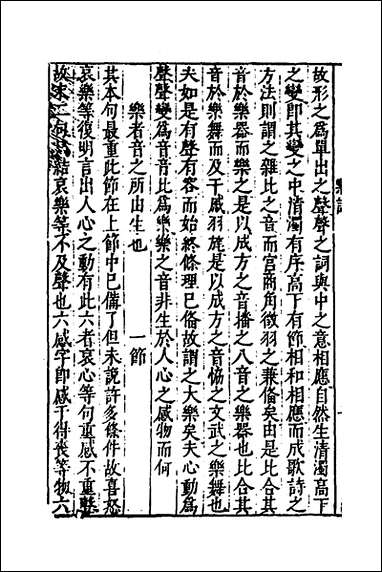 故形之爲單出之聲聲之詞與中之意相應自然生清濁高下
之變即其變之中清濁有序高下有節相和相應而成歌詩之
方法則謂之雜比之音而宮商角徵羽之兼備矣由是比合其
音於樂器而樂之是以成方之音播之八音之樂器也比合其
音於樂舞而及干戚羽旄是以成方之音恊之文武之樂舞也
夫如是有聲有容而始終條理巳俻故謂之大樂矣夫心動爲
聲聲變爲音音比爲樂樂之音非生於人心之感物而何
樂者音之所由生也 一節
其本句最重此節在上節中已備了但未說許多條件故喜怒
哀樂等復明言出人心之動有此六者哀心等句重感不重聲
故末二句結哀樂等不及聲也六感字即感于得喪等物六